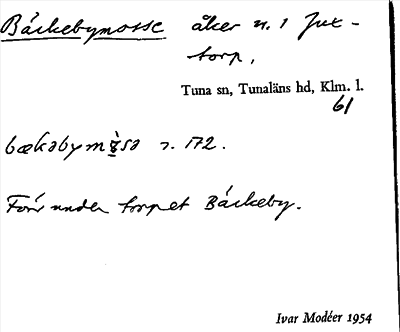 Bäckebymosse åker n. 1 Jux-
torp.
Tuna sn, Tunaläns hd, Klm. l.
61
bækəbymɷ̀sə r. 172.
Förr under torpet Bäckeby.
Ivar Modéer 1954